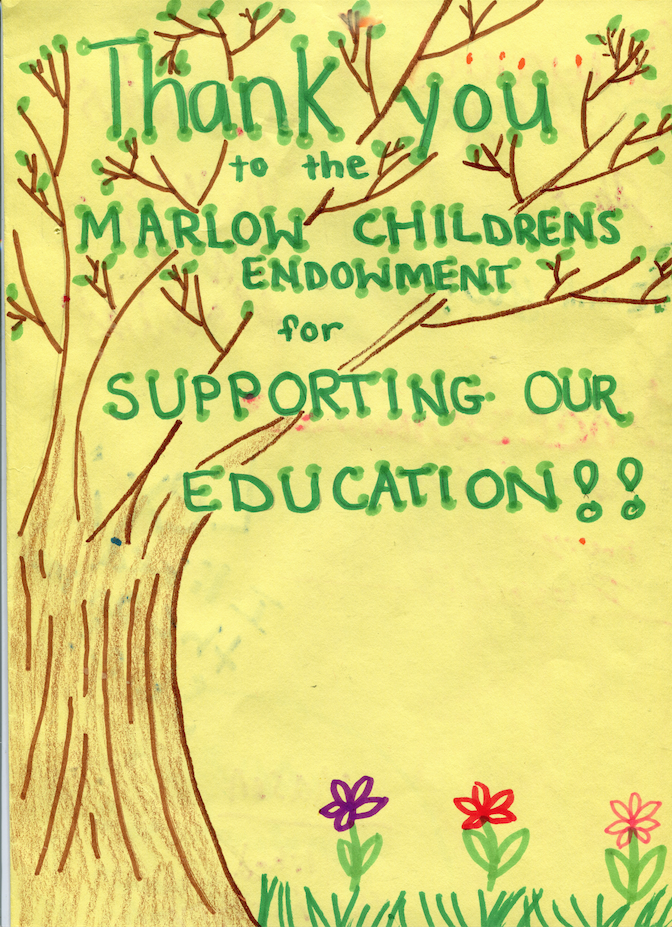 Thank you
to the
MARLOW CHILDRENS
ENDOWMENT
for
SUPPORTING OUR
EDUCATION!!